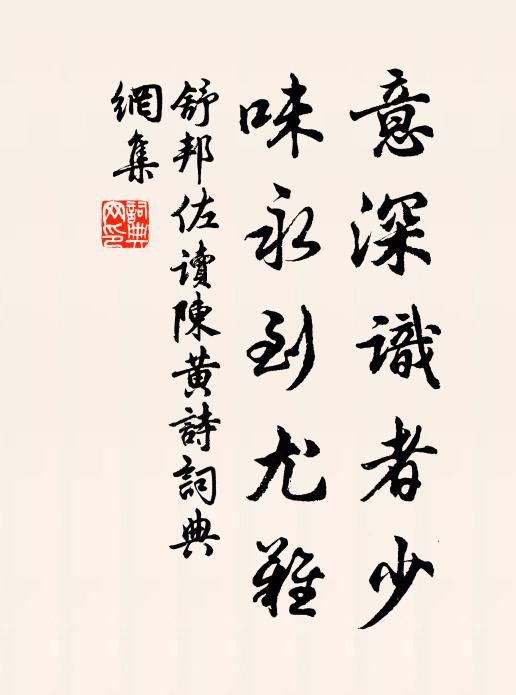 意深識者少
味永到尤難
舒邦佐讀陳黄詩詞典
網集
詞典
网印